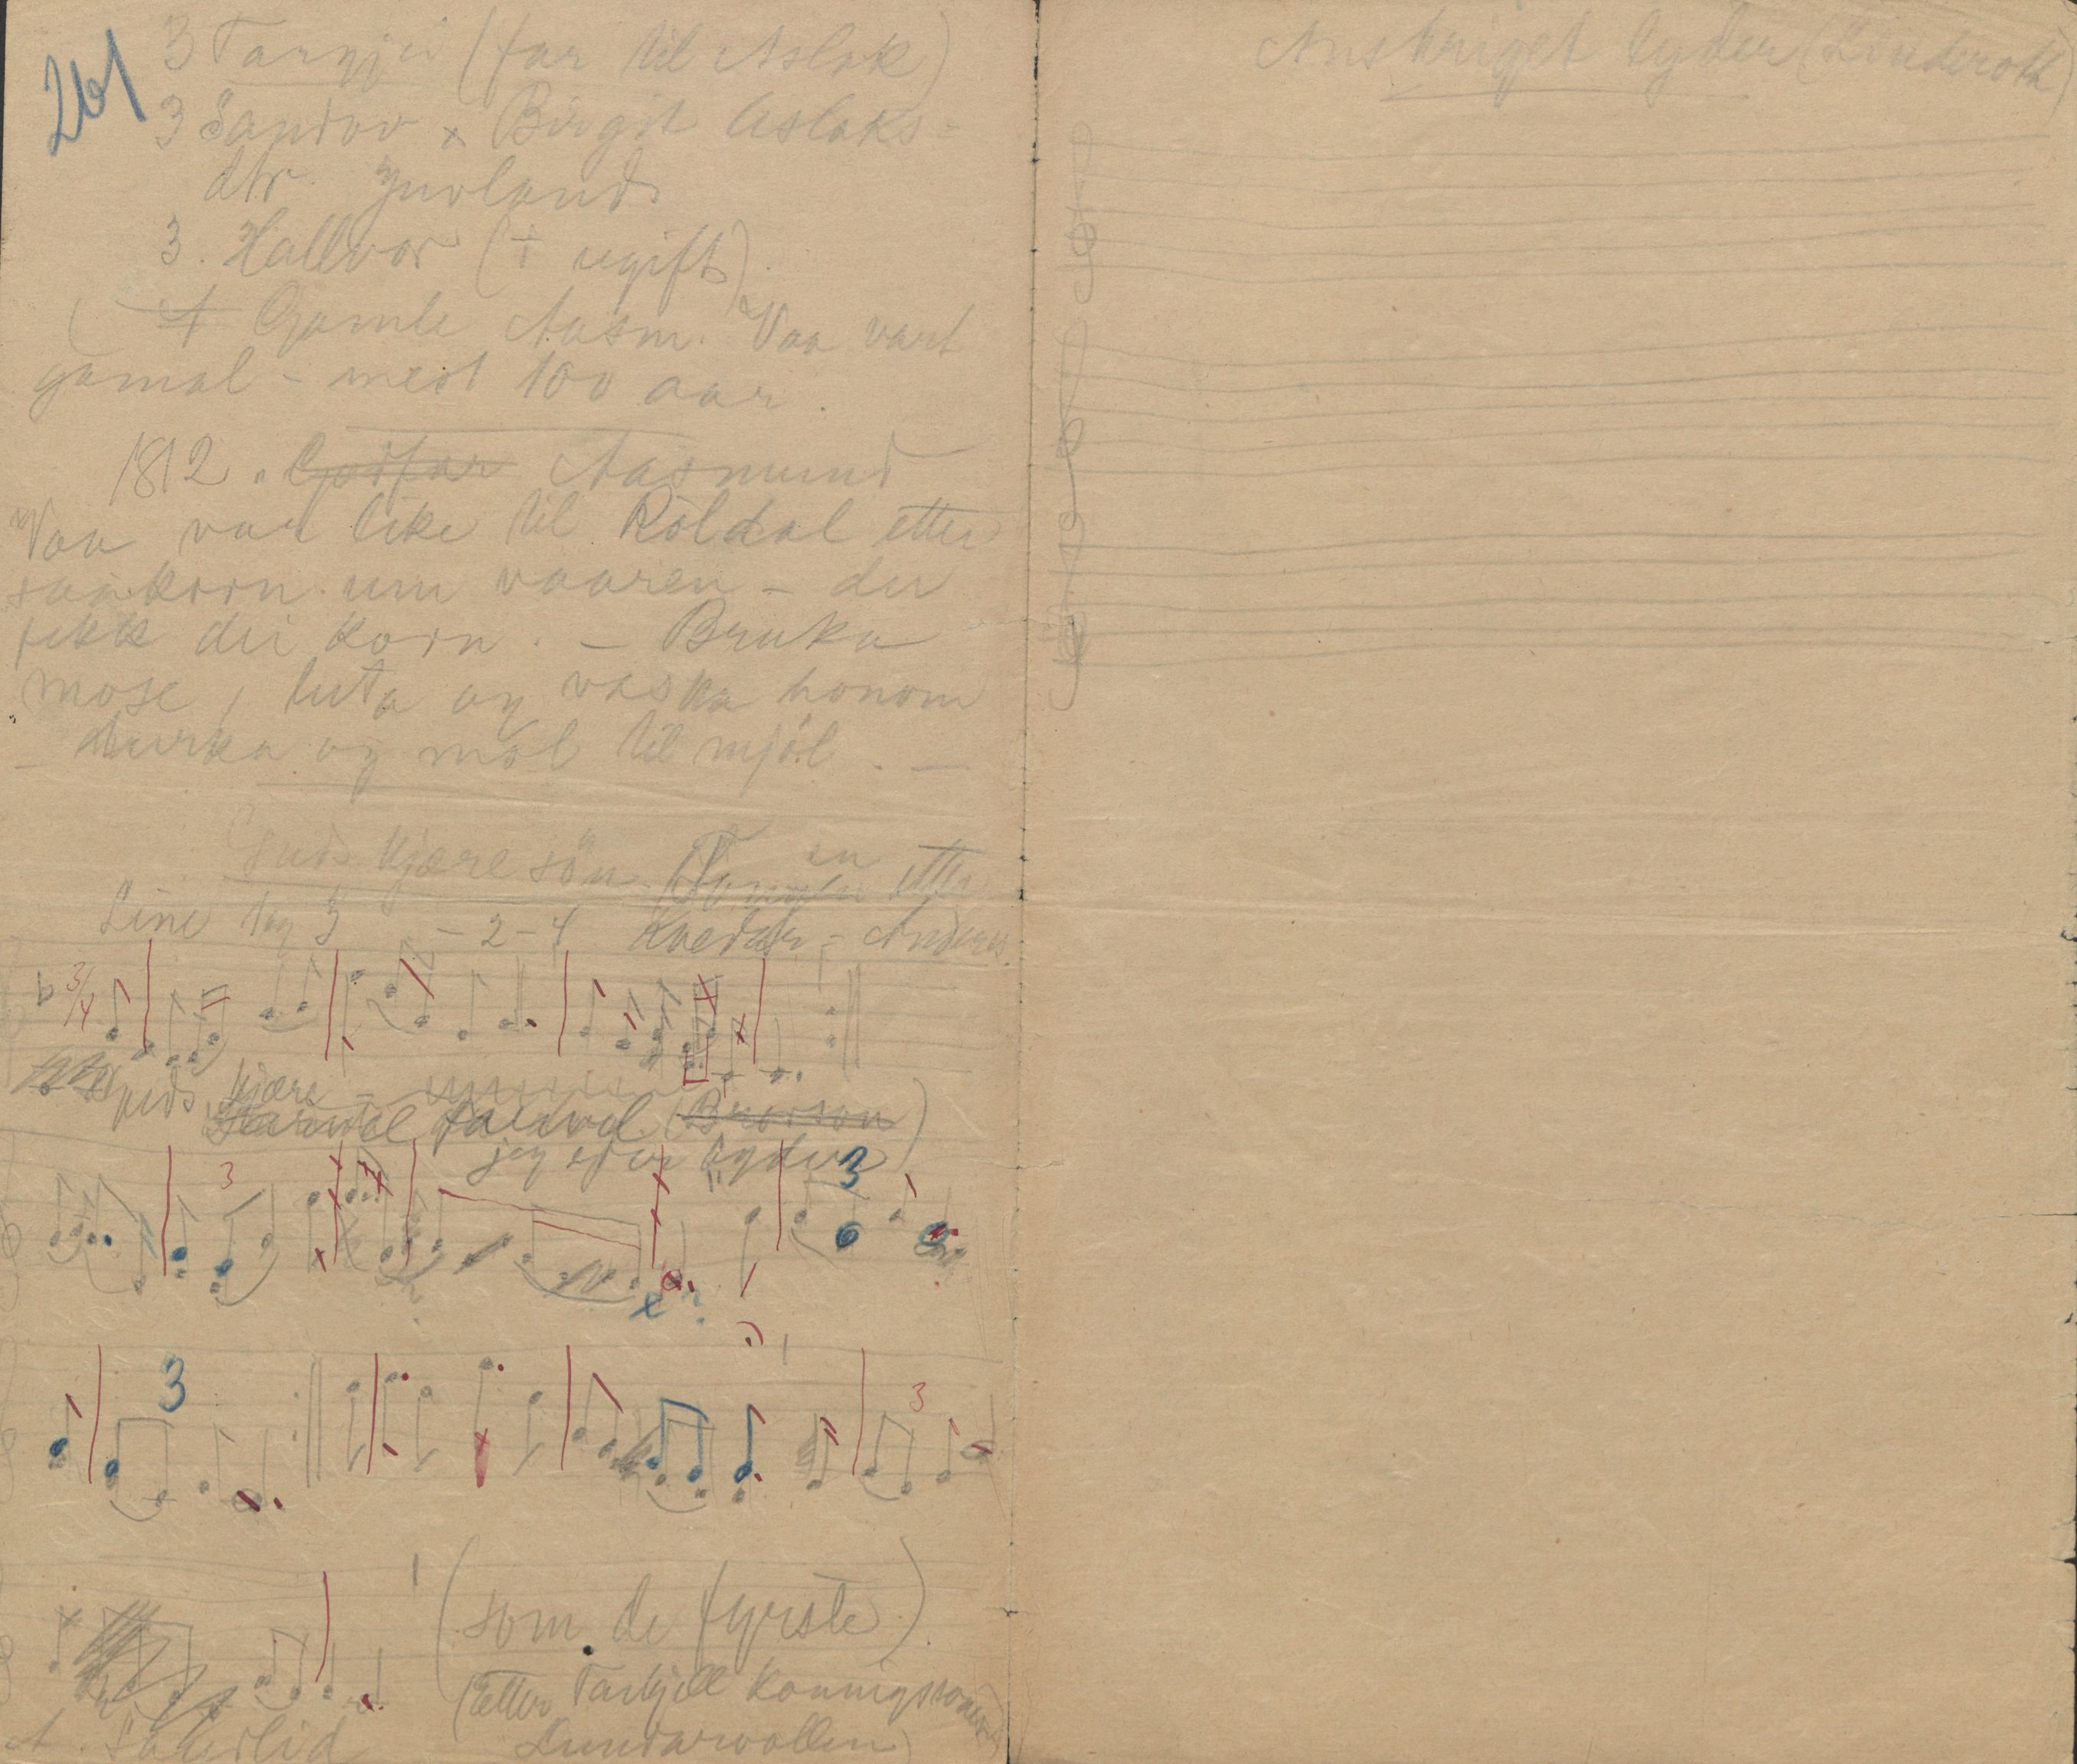 261
3 Targjei (far til Aslak)
3 Sandov x Birgit Aslaks-
dtr. Juvland
3. Hallvor (+ ugift).
(4 Gamle Aasm. Vaa vart
gamal - mest 100 aar.
1812. Godfar Aasmund
Vaa var like til Röldal etter
saakorn um vaaren - der
fekk dei korn. - Bruka
mose, luta og vaska honom
- turka og mol til mjöl. -
Guds kjære sön. en etter
Line tog 3 - 2 - 4 - Anders
3/4
Guds kjære
Farvel (Brorson)
jeg lyder)
3 3
3 3
(som de fyrste).
(Etter Targjell Konningsson
Lundarvollen)
A.
Anskriget lyder (Linderoth)